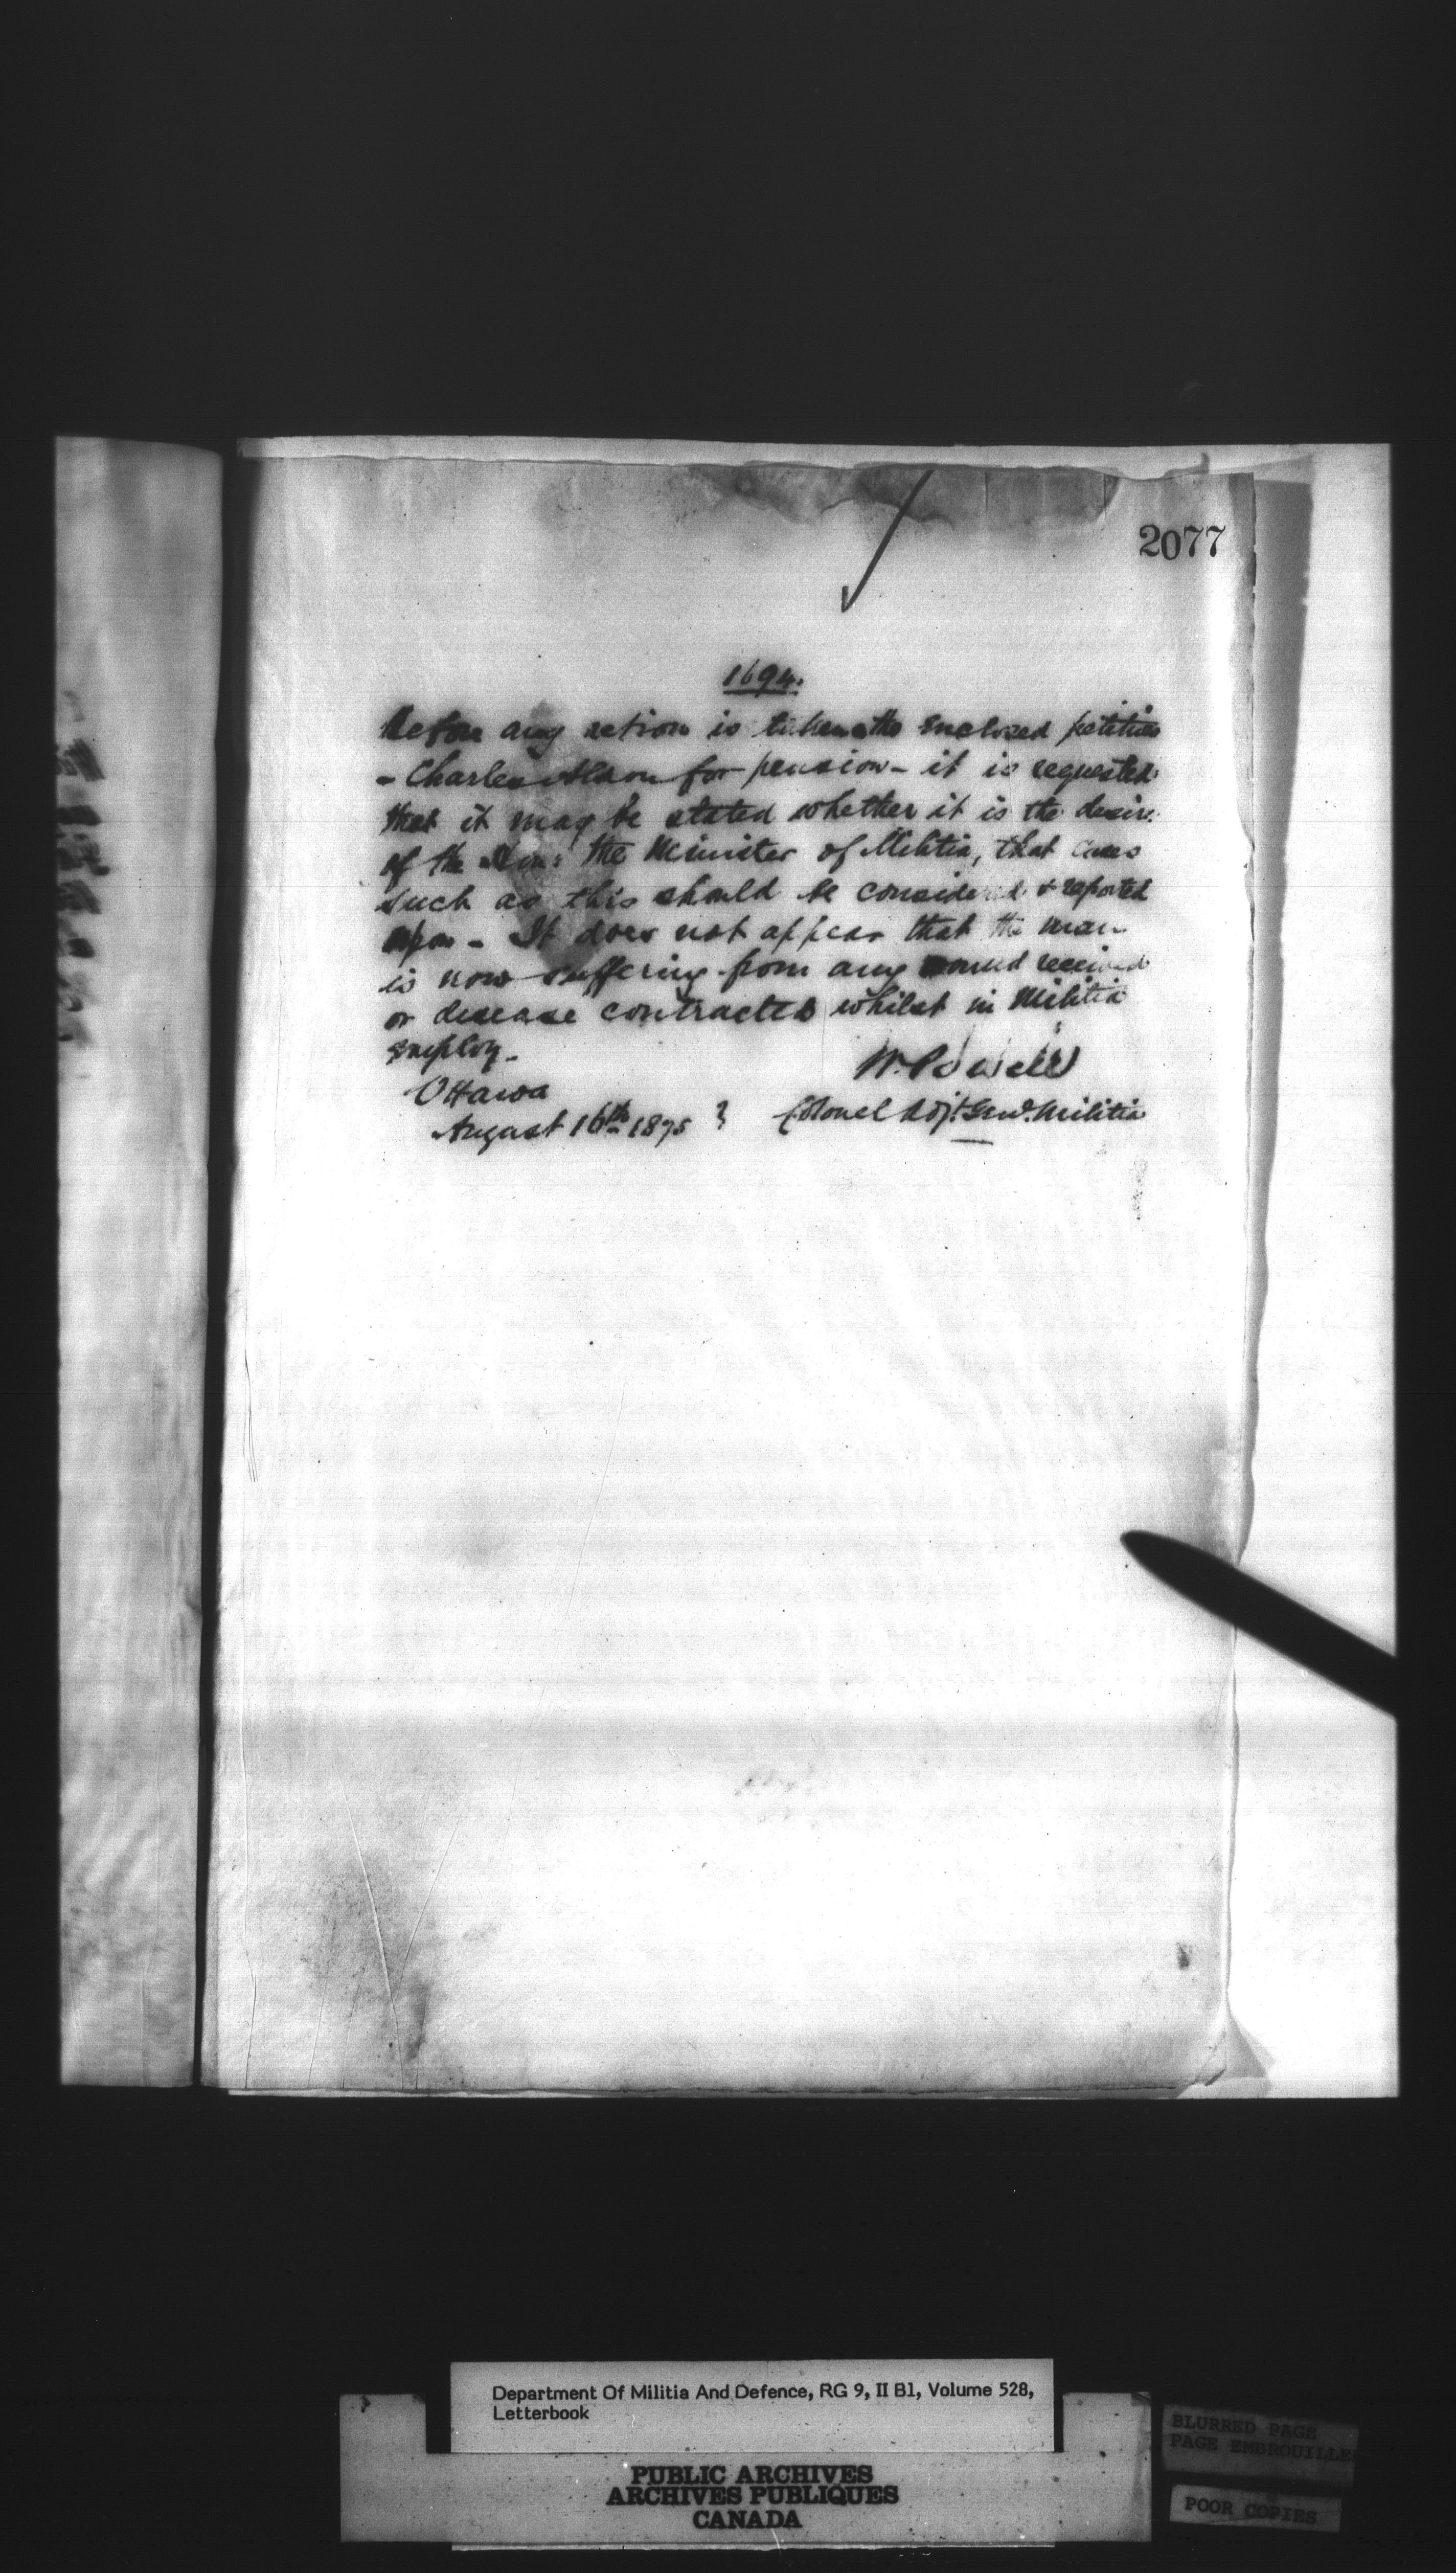 2077
1694.
Before any action is taken the enclosed petition
- Charles for pension - it is requested
that it may be stated whether it is the desire
of the Hon: the Minister of Militia, that cases
such as this should be considered & reported
upon - It does not appear that the man
is now suffering from any wound received
or disease contracted whilst in Militia
employ -
W. Powell
Ottawa
Colonel Adjt. Genl. Militia
August 16th 1875
Department Of Militia And Defence, RG 9, II B1, Volume 528,
Letterbook
PUBLIC ARCHIVES
ARCHIVES PUBLIQUES
CANADA
BLURRED PAGE
PAGE EMBROUILLEE
POOR COPIES